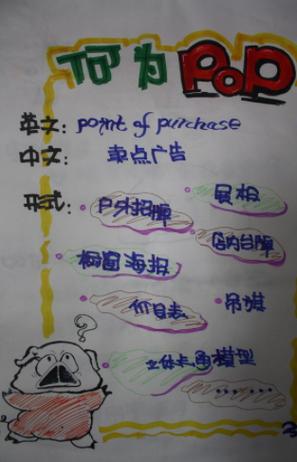 何为POP
英文: point of purchase
中文: 卖点广告
形式: 户外招牌 展板
店内台牌
橱窗海报
价目表 吊旗
立体卡通模型
......
?